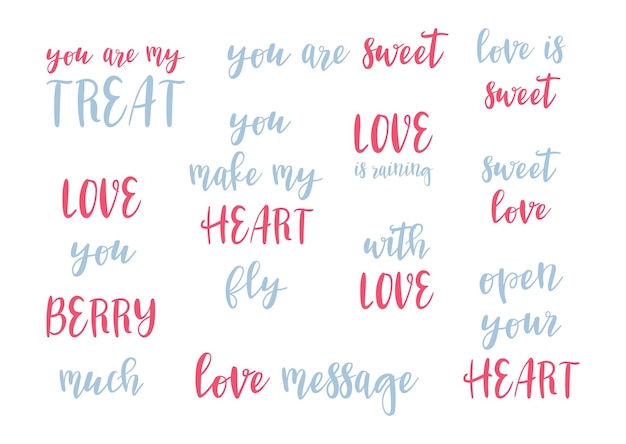 you are my
TREAT
you are sweet
love is
sweet
you
make my
HEART
fly
LOVE
is raining
sweet
love
LOVE
you
BERRY
much
with
LOVE
open
your
HEART
love message